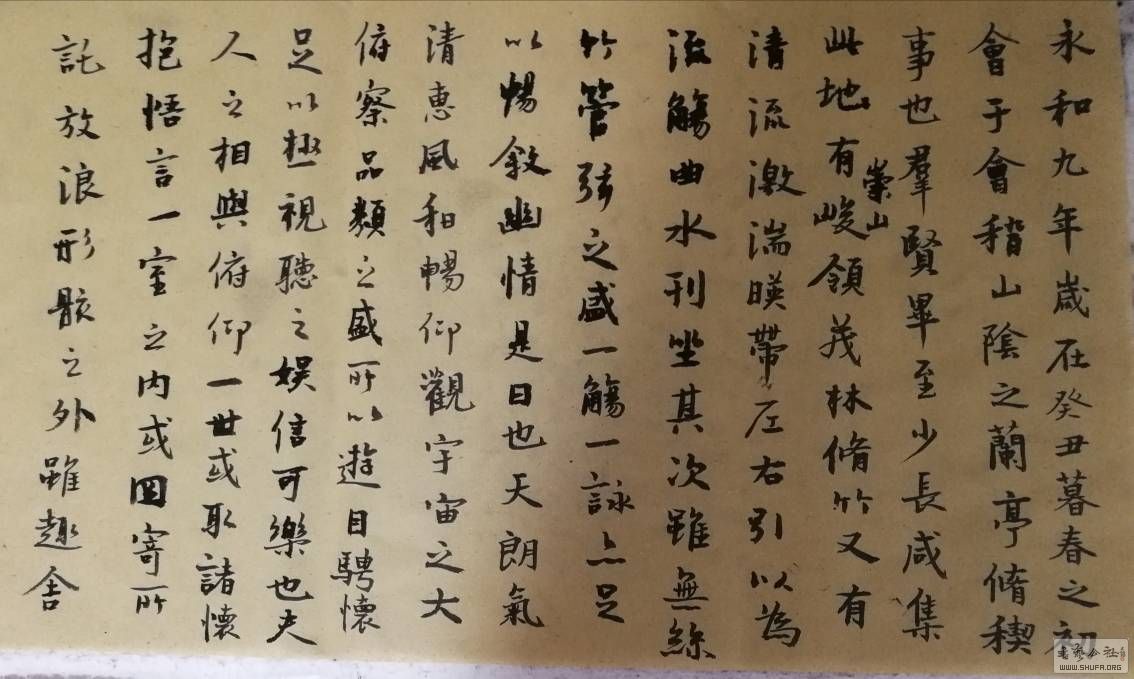 永和九年歲在癸丑暮春之初
會于會稽山陰之蘭亭脩稧
事也羣賢畢至少長咸集
此地有崇山峻領茂林脩竹又有
清流激湍暎帶左右引以為
流觴曲水列坐其次雖無絲
竹管弦之盛一觴一詠亦足
以暢敘幽情是日也天朗氣
清惠風和暢仰觀宇宙之大
俯察品類之盛所以遊目騁懷
足以極視聽之娛信可樂也夫
人之相與俯仰一世或取諸懷
抱悟言一室之內或因寄所
託放浪形骸之外雖趣舍
WWW.SHUFA.ORG